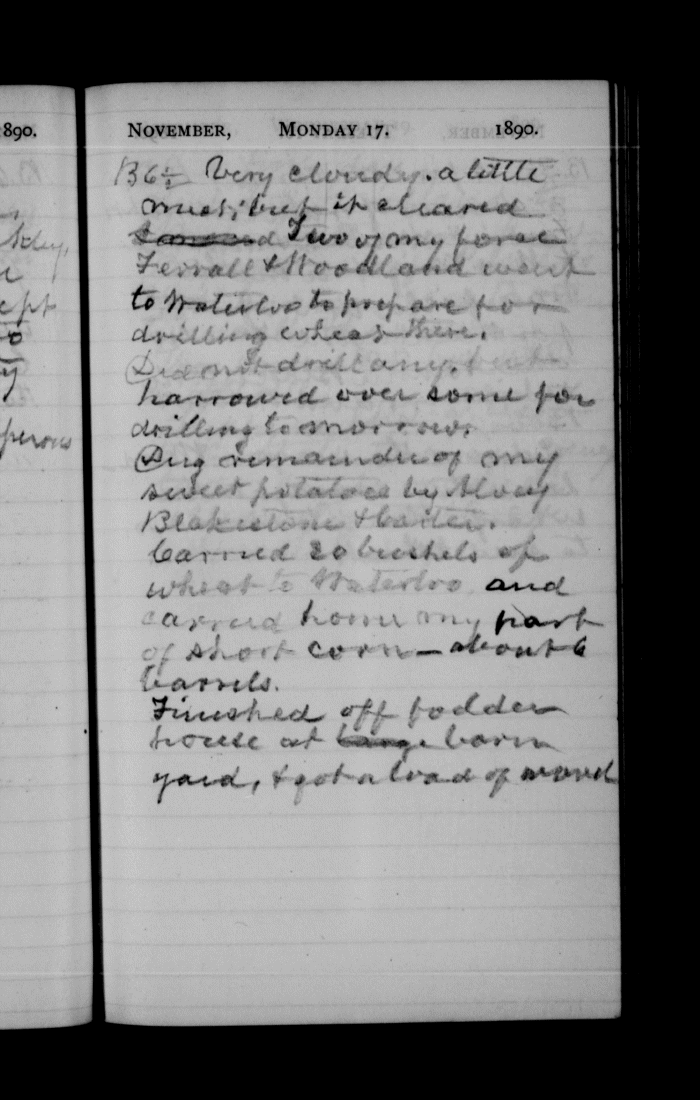 1890.
NOVEMBER, MONDAY 17. 1890.
B 6½ Very cloudy. a little
mist; but it cleared
Two of my force
Ferrall & Woodland went
to Waterloo to prepare for
drilling wheat there.
Did not drill any, but
harrowed over some for
drilling to morrow.
Dug remainder of my
sweet potatoes by Alvey
Blakistone & Carter.
Carried 20 bushels of
wheat to Waterloo and
carried home my part
of short corn — about 6
barrels.
Finished off fodder
house at barn
yard, & got a load of wood